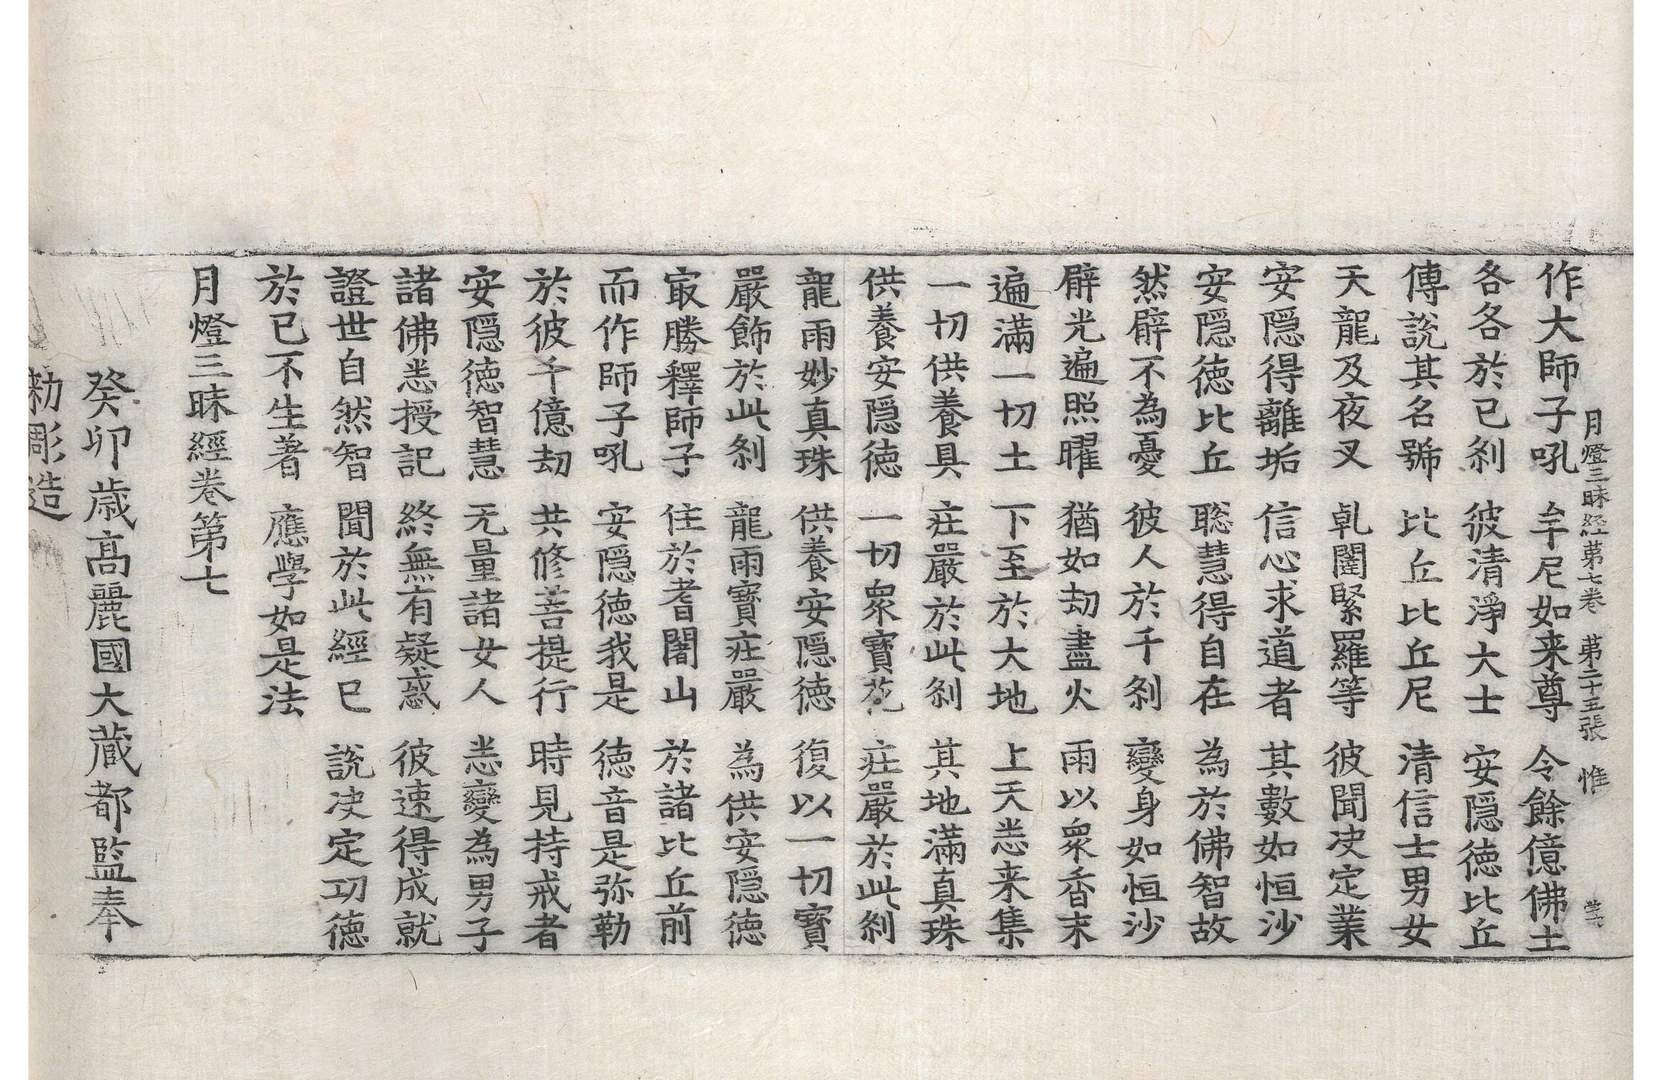 月燈三昧経第七卷 苐二十五張 惟
作大師子吼 牟尼如来尊 令餘億佛土
各各於已剎 彼清淨大士 安隱徳比丘
傳說其名號 比丘比丘尼 清信士男女
天龍及夜叉 乹闥緊羅等 彼聞决定業
安隱得離垢 信心求道者 其數如恒沙
安隱徳比丘 聡慧得自在 為於佛智故
然臂不為憂 彼人於千剎 變身如恒沙
臂光遍照曜 猶如劫盡火 雨以衆香末
遍滿一切土 下至於大地 上天悉来集
一切供養具 莊嚴於此剎 其地滿真珠
供養安隱徳 一切衆寶花 莊嚴於此剎
龍雨妙真珠 供養安隱徳 復以一切寶
嚴飾於此剎 龍雨寶莊嚴 為供安隱徳
㝡勝釋師子 住於耆闍山 於諸比丘前
而作師子吼 安隱徳我是 徳音是弥勒
於彼千億劫 共修菩提行 時見持戒者
安隱徳智慧 无量諸女人 悉變為男子
諸佛悉授記 終無有疑惑 彼速得成就
證世自然智 聞於此經已 說决定功徳
於已不生著 應學如是法
月燈三昧經卷第七
癸卯歳高麗國大藏都監奉
勅彫造